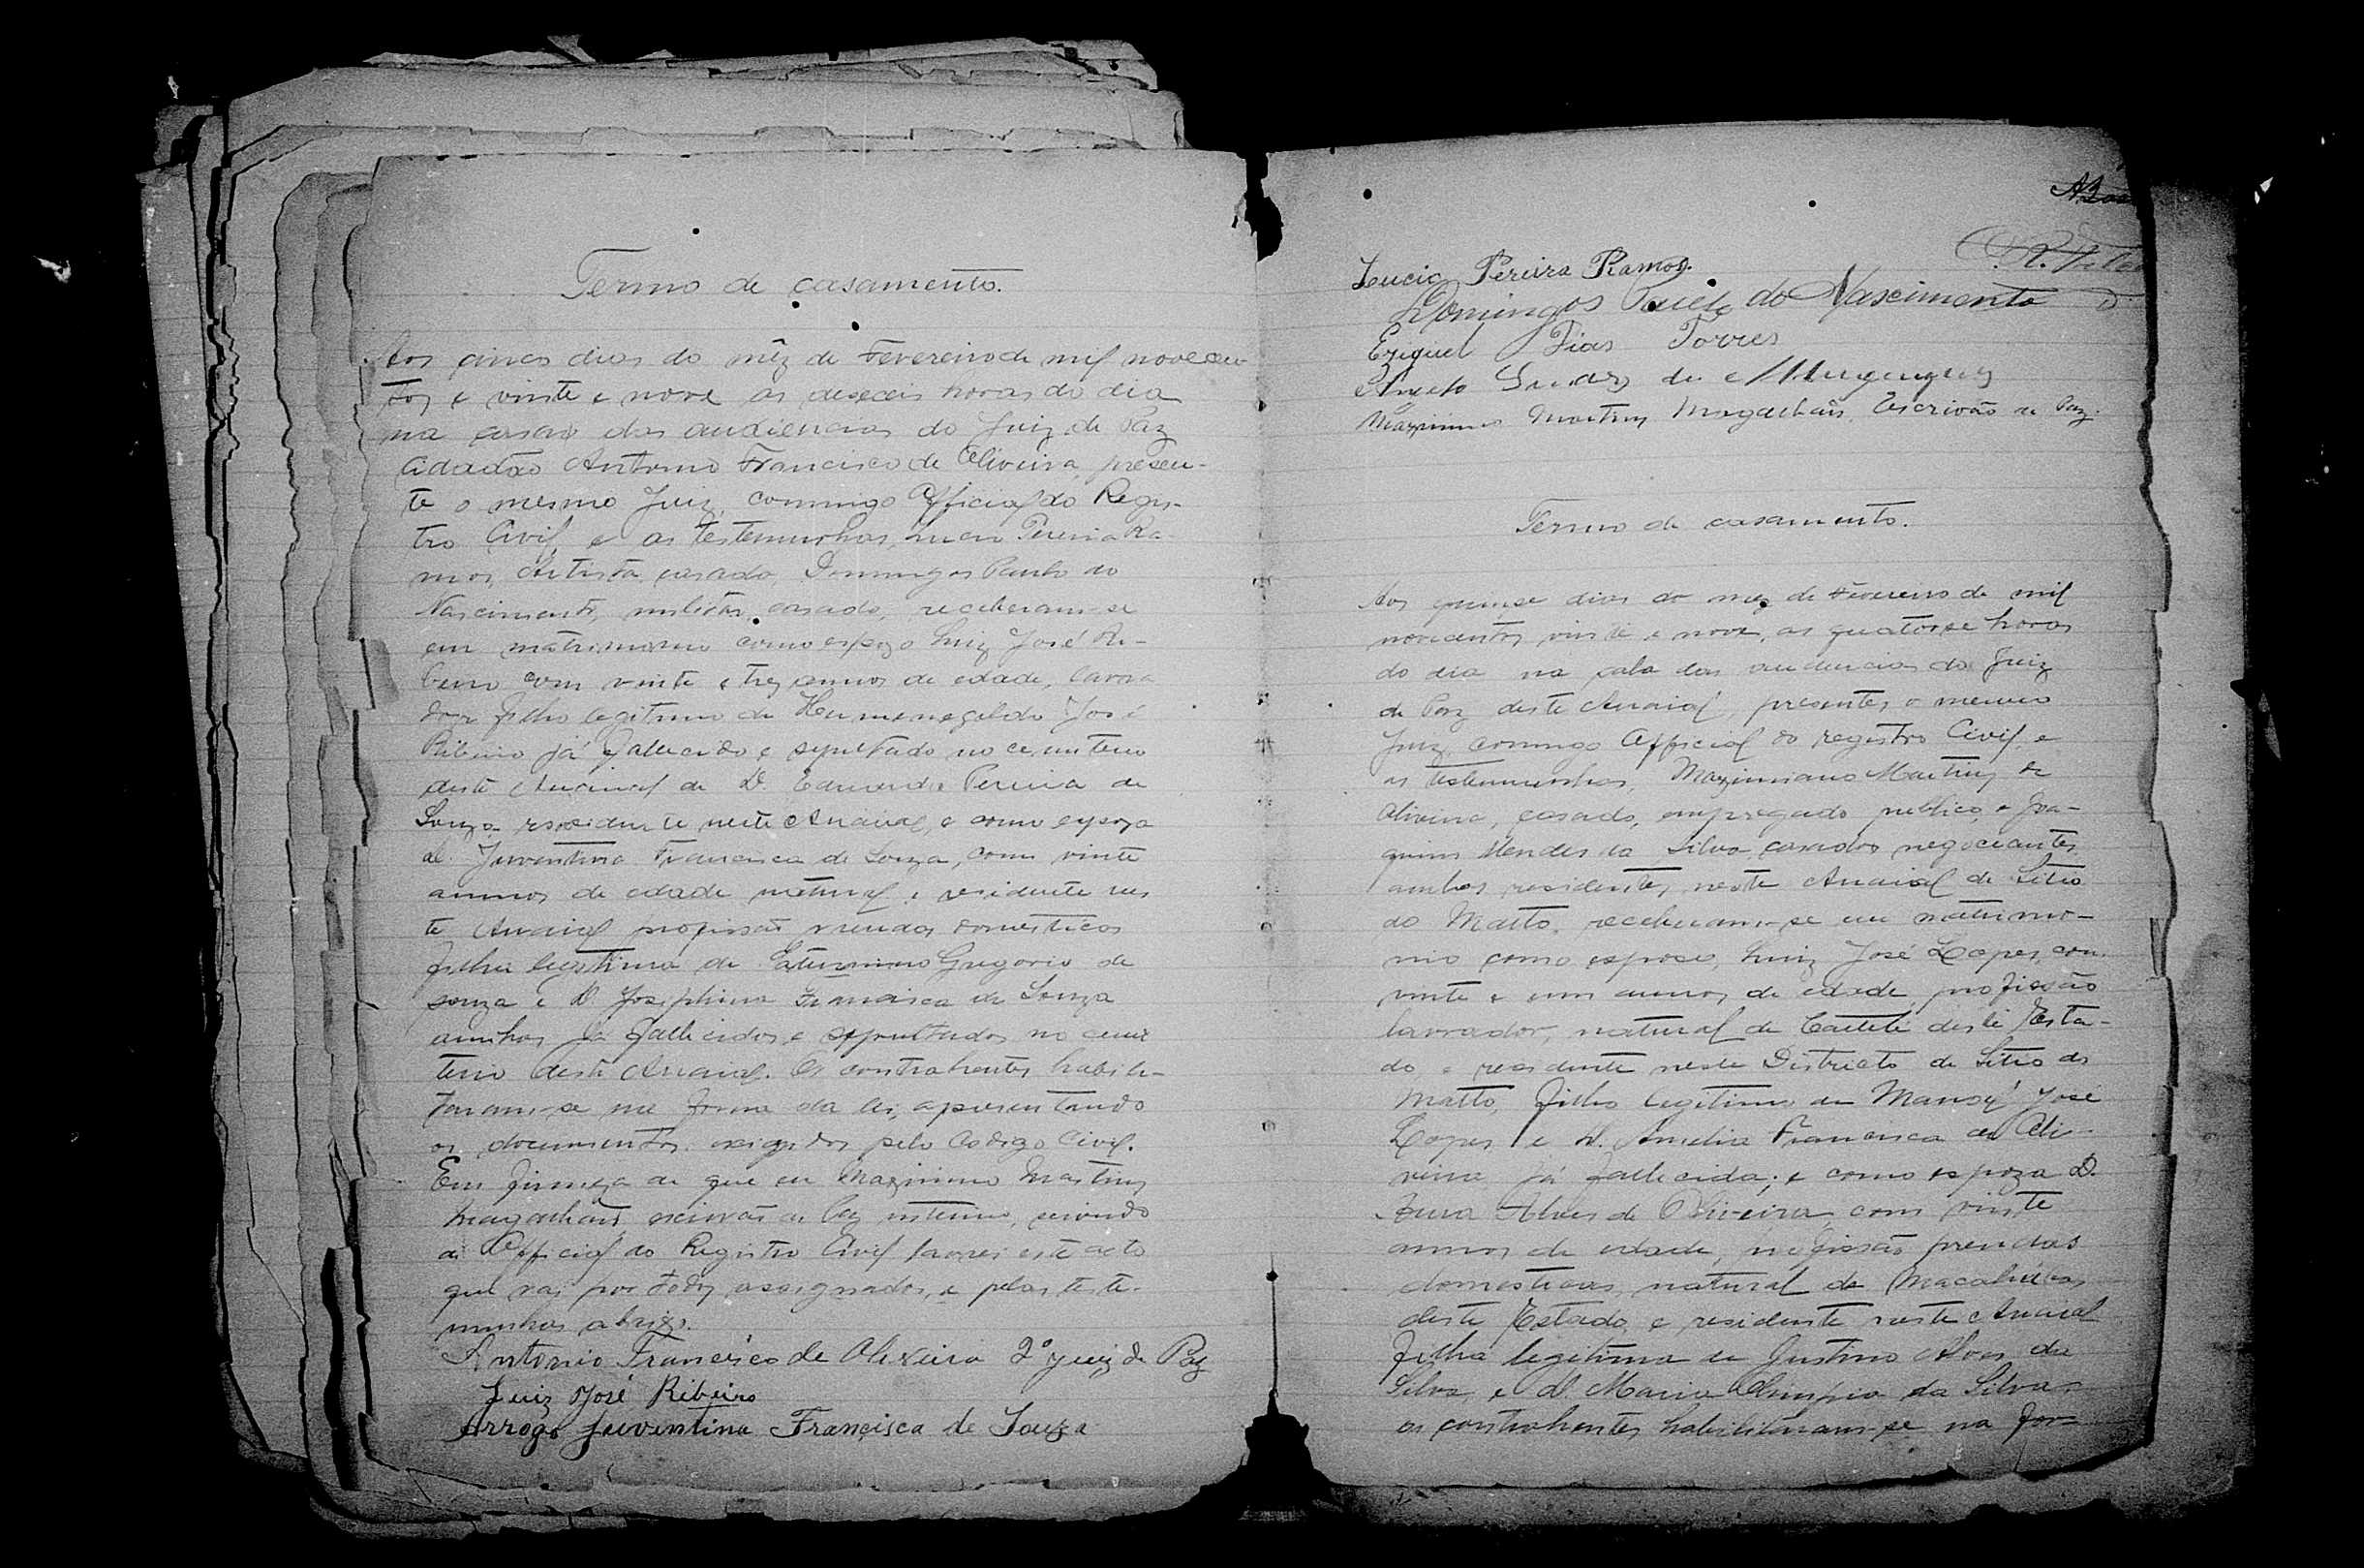 Termo de casamento.
Aos cinco dias do mêz de Fevereiro de mil novecen-
tos e vinte e nove as deseceis horas do dia
na casa das audiencias do Juiz de Paz
Cidadão Antonio Francisco de Oliveira, presen-
te o mesmo Juiz, comingo Official do Regis-
tro Civil, e as testemunhas, Lucio Pereira Ra-
mos, Artista, casado, Domingos Paulo do
Nascimento, militar, casado, receberam-se
em matrimonio como espozo Luiz José Ri-
beiro com vinte e trez annos de edade, lavra
dor filho legitimo de Hermenegildo José
Ribeiro já fallecido e sepultado no cemiterio
deste Arraial de D. Eduarda Pereira de
Souza residente neste Arraial, e como espoza
D. Juventina Francisca de Souza, com vinte
annos de edade natural e residente nes
te Arraial profissão prendas domesticas
filha legitima de Saturnino Gregorio de
souza e D. Josephina Francisca de Souza
ambos já fallecidos e sepultados no cemi
terio deste Arraial. Os contrahentes habili-
taram-se na forma da lei, apresentando
os documentos exigidos pelo Codigo Civil.
Em firmeza do que eu Maximino Martins
Magalhães escrivão de Paz interino, servindo
de Official do Registro Civil lavrei este acto
que vai por todos assignados, e pelas teste-
munhas abaixo.
Antonio Francisco de Oliveira 2º juiz de Paz
Luiz José Ribeiro
Arrogo Juventina Francisca de Souza
Lucio Pereira Ramos.
Domingos Paulo do Nascimento
Eziquel Dias Torres
Maximino Martins Magalhães, Escrivão de Paz.
Termo de casamento.
Aos quinse dias do mez de Fevereiro de mil
novecentos vinte e nove, as quatorse horas
do dia na sala das audiencias do Juiz
de Paz deste Arraial, presentes o mesmo
Juiz, comingo Official do registro Civil e
as testemunhas, Maximiano Martins de
Oliveira, casado, empregado publico, e Joa-
quim Mendes da Silva casados negociantes
ambos residentes neste Arraial de Sitio
do Matto, receberam-se em matrimo-
nio como esposo, Luiz José Lopes, com
vinte e um annos de edade, profissão
lavrador, natural de Caiteté deste Esta-
do e residente neste Districto de Sitio do
Matto, filho legitimo de Manoel José
Lopes, e D. Amelia Francisca de Oli-
veira já fallecida; e como espoza D.
Aurea Alves de Oliveira, com vinte
annos de edade, profissão prendas
domesticas, natural de Macahubas
deste Estado, e residente neste Arraial
filha legitima de Justino Alves da
Silva, e D. Maria Olimpia da Silva,
os contrahentes habilitaram-se na for-